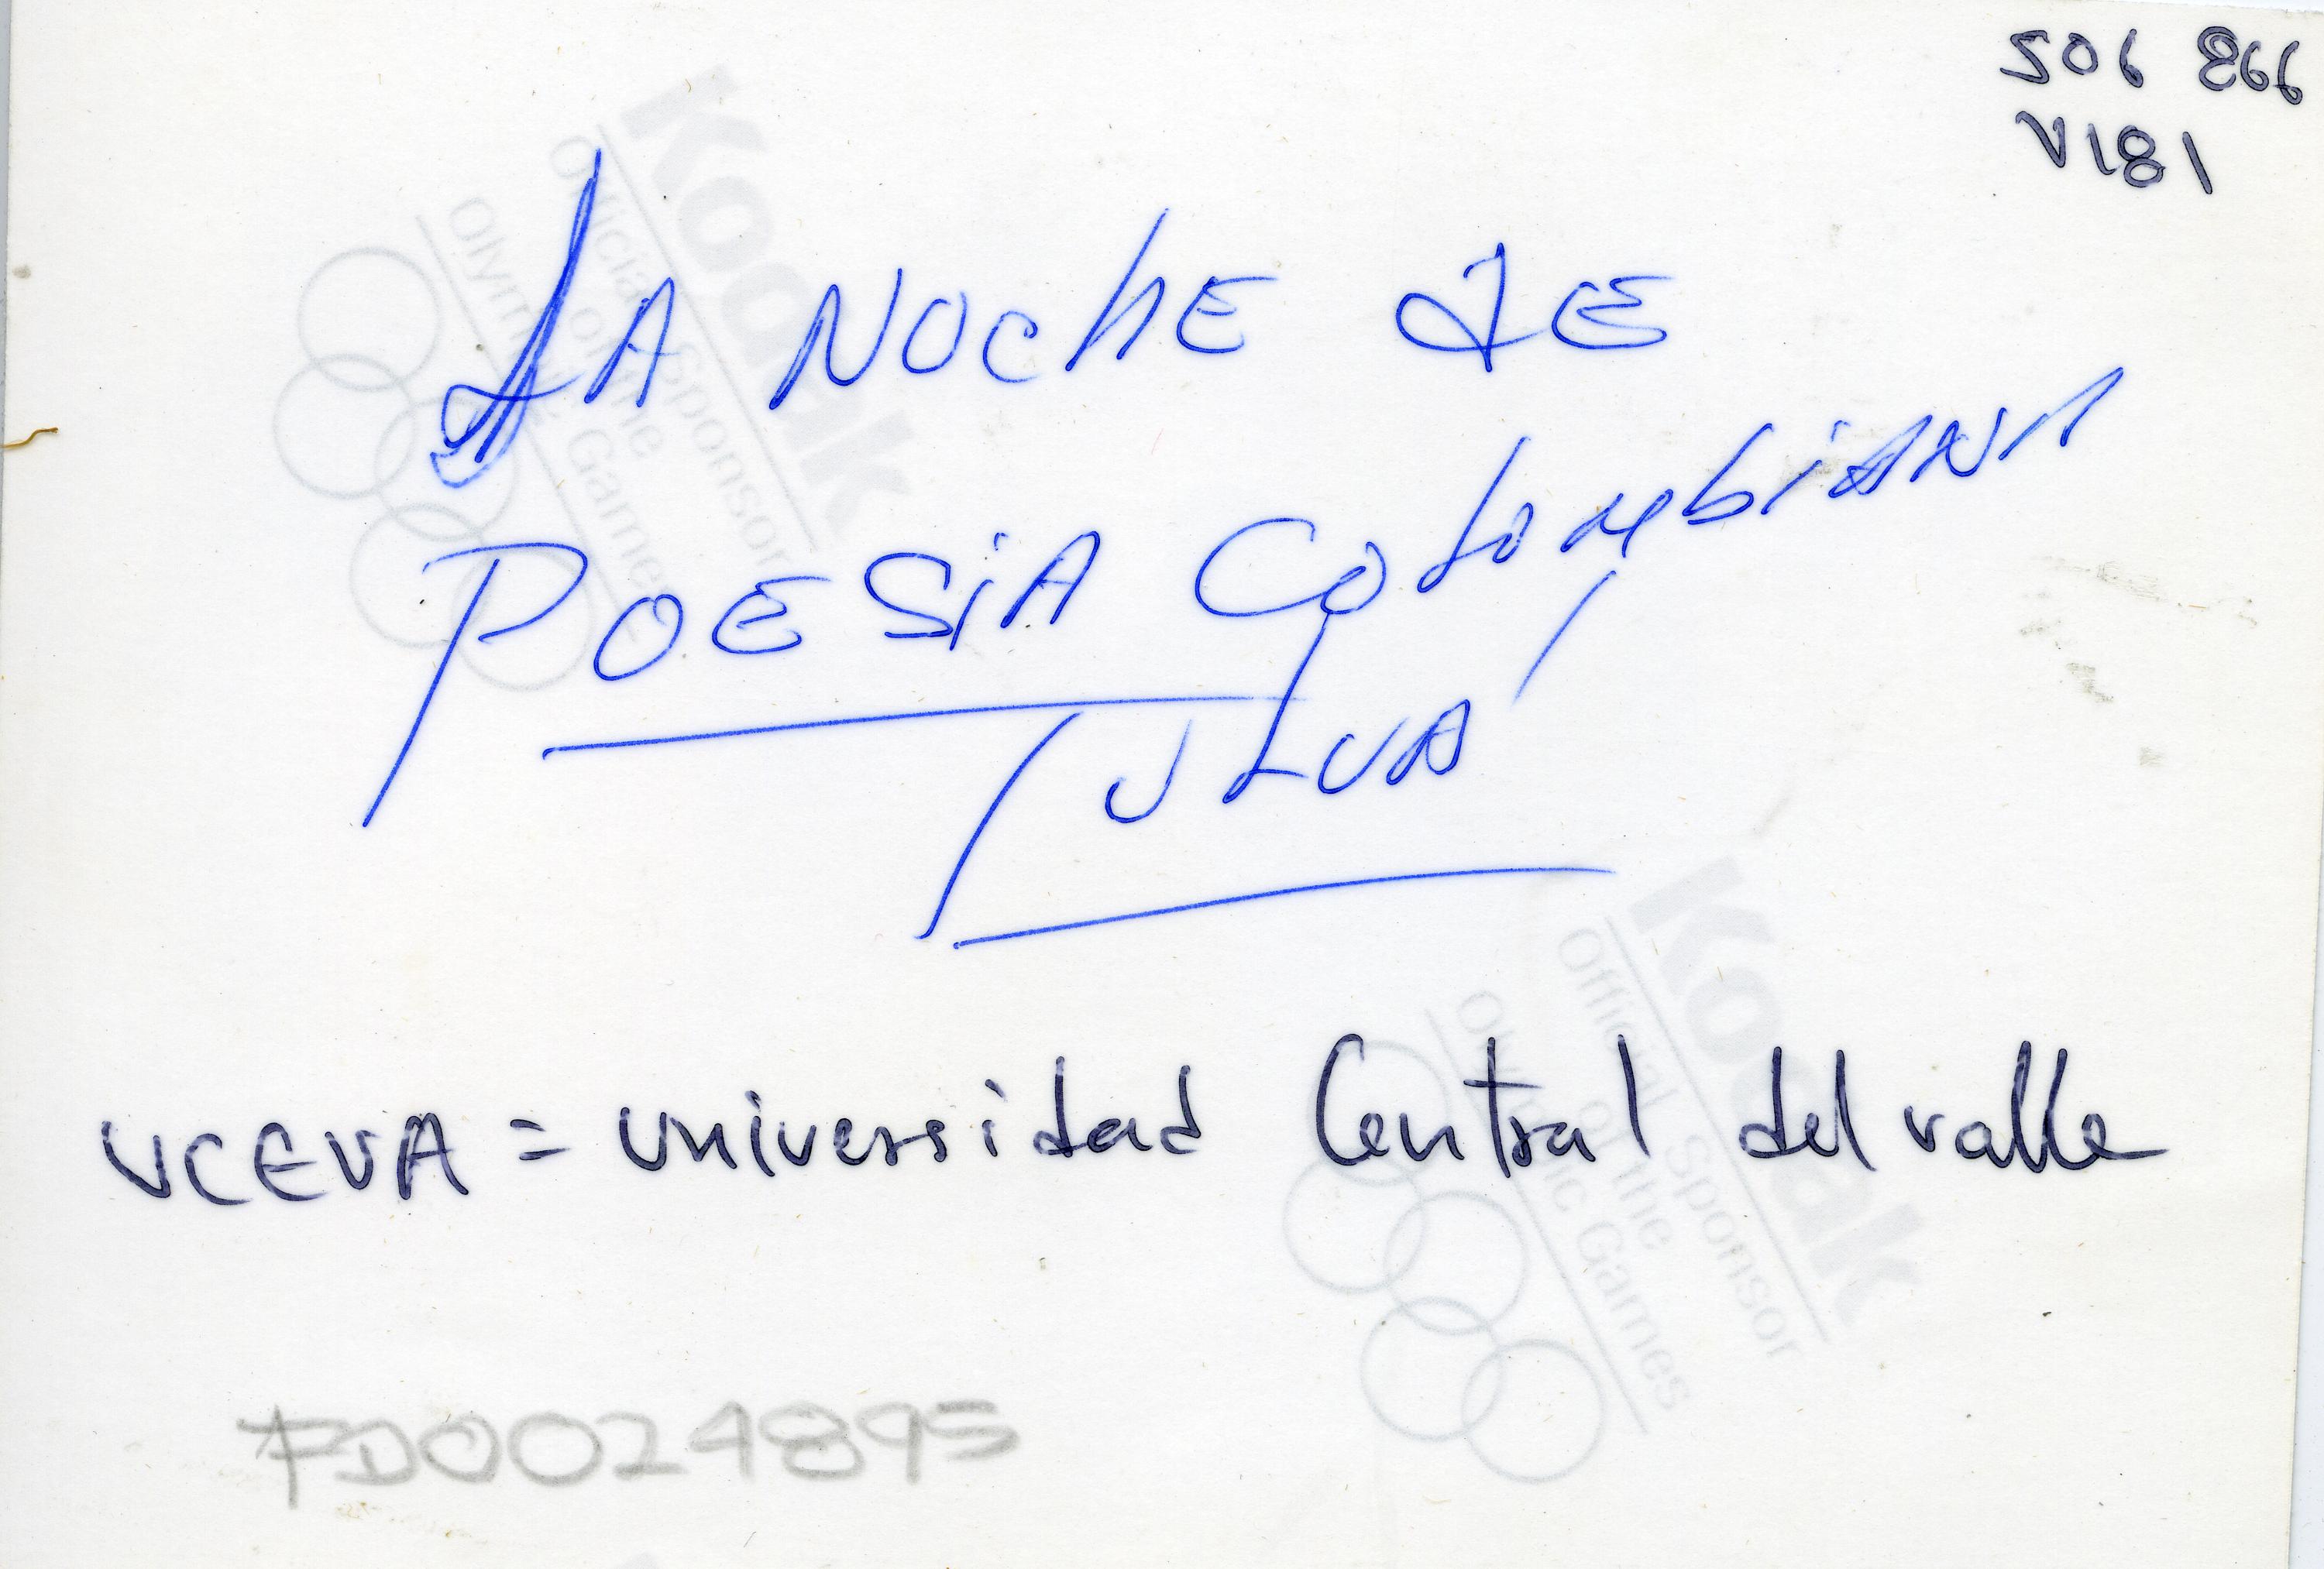 506 866
V181
LA NOCHE DE
POESIA COLOMBIANA
TULUÁ
UCEVA = Universidad Central del valle
FD0024895
Kodak
Official Sponsor
of the
Olympic Games
Kodak
Official Sponsor
of the
Olympic Games